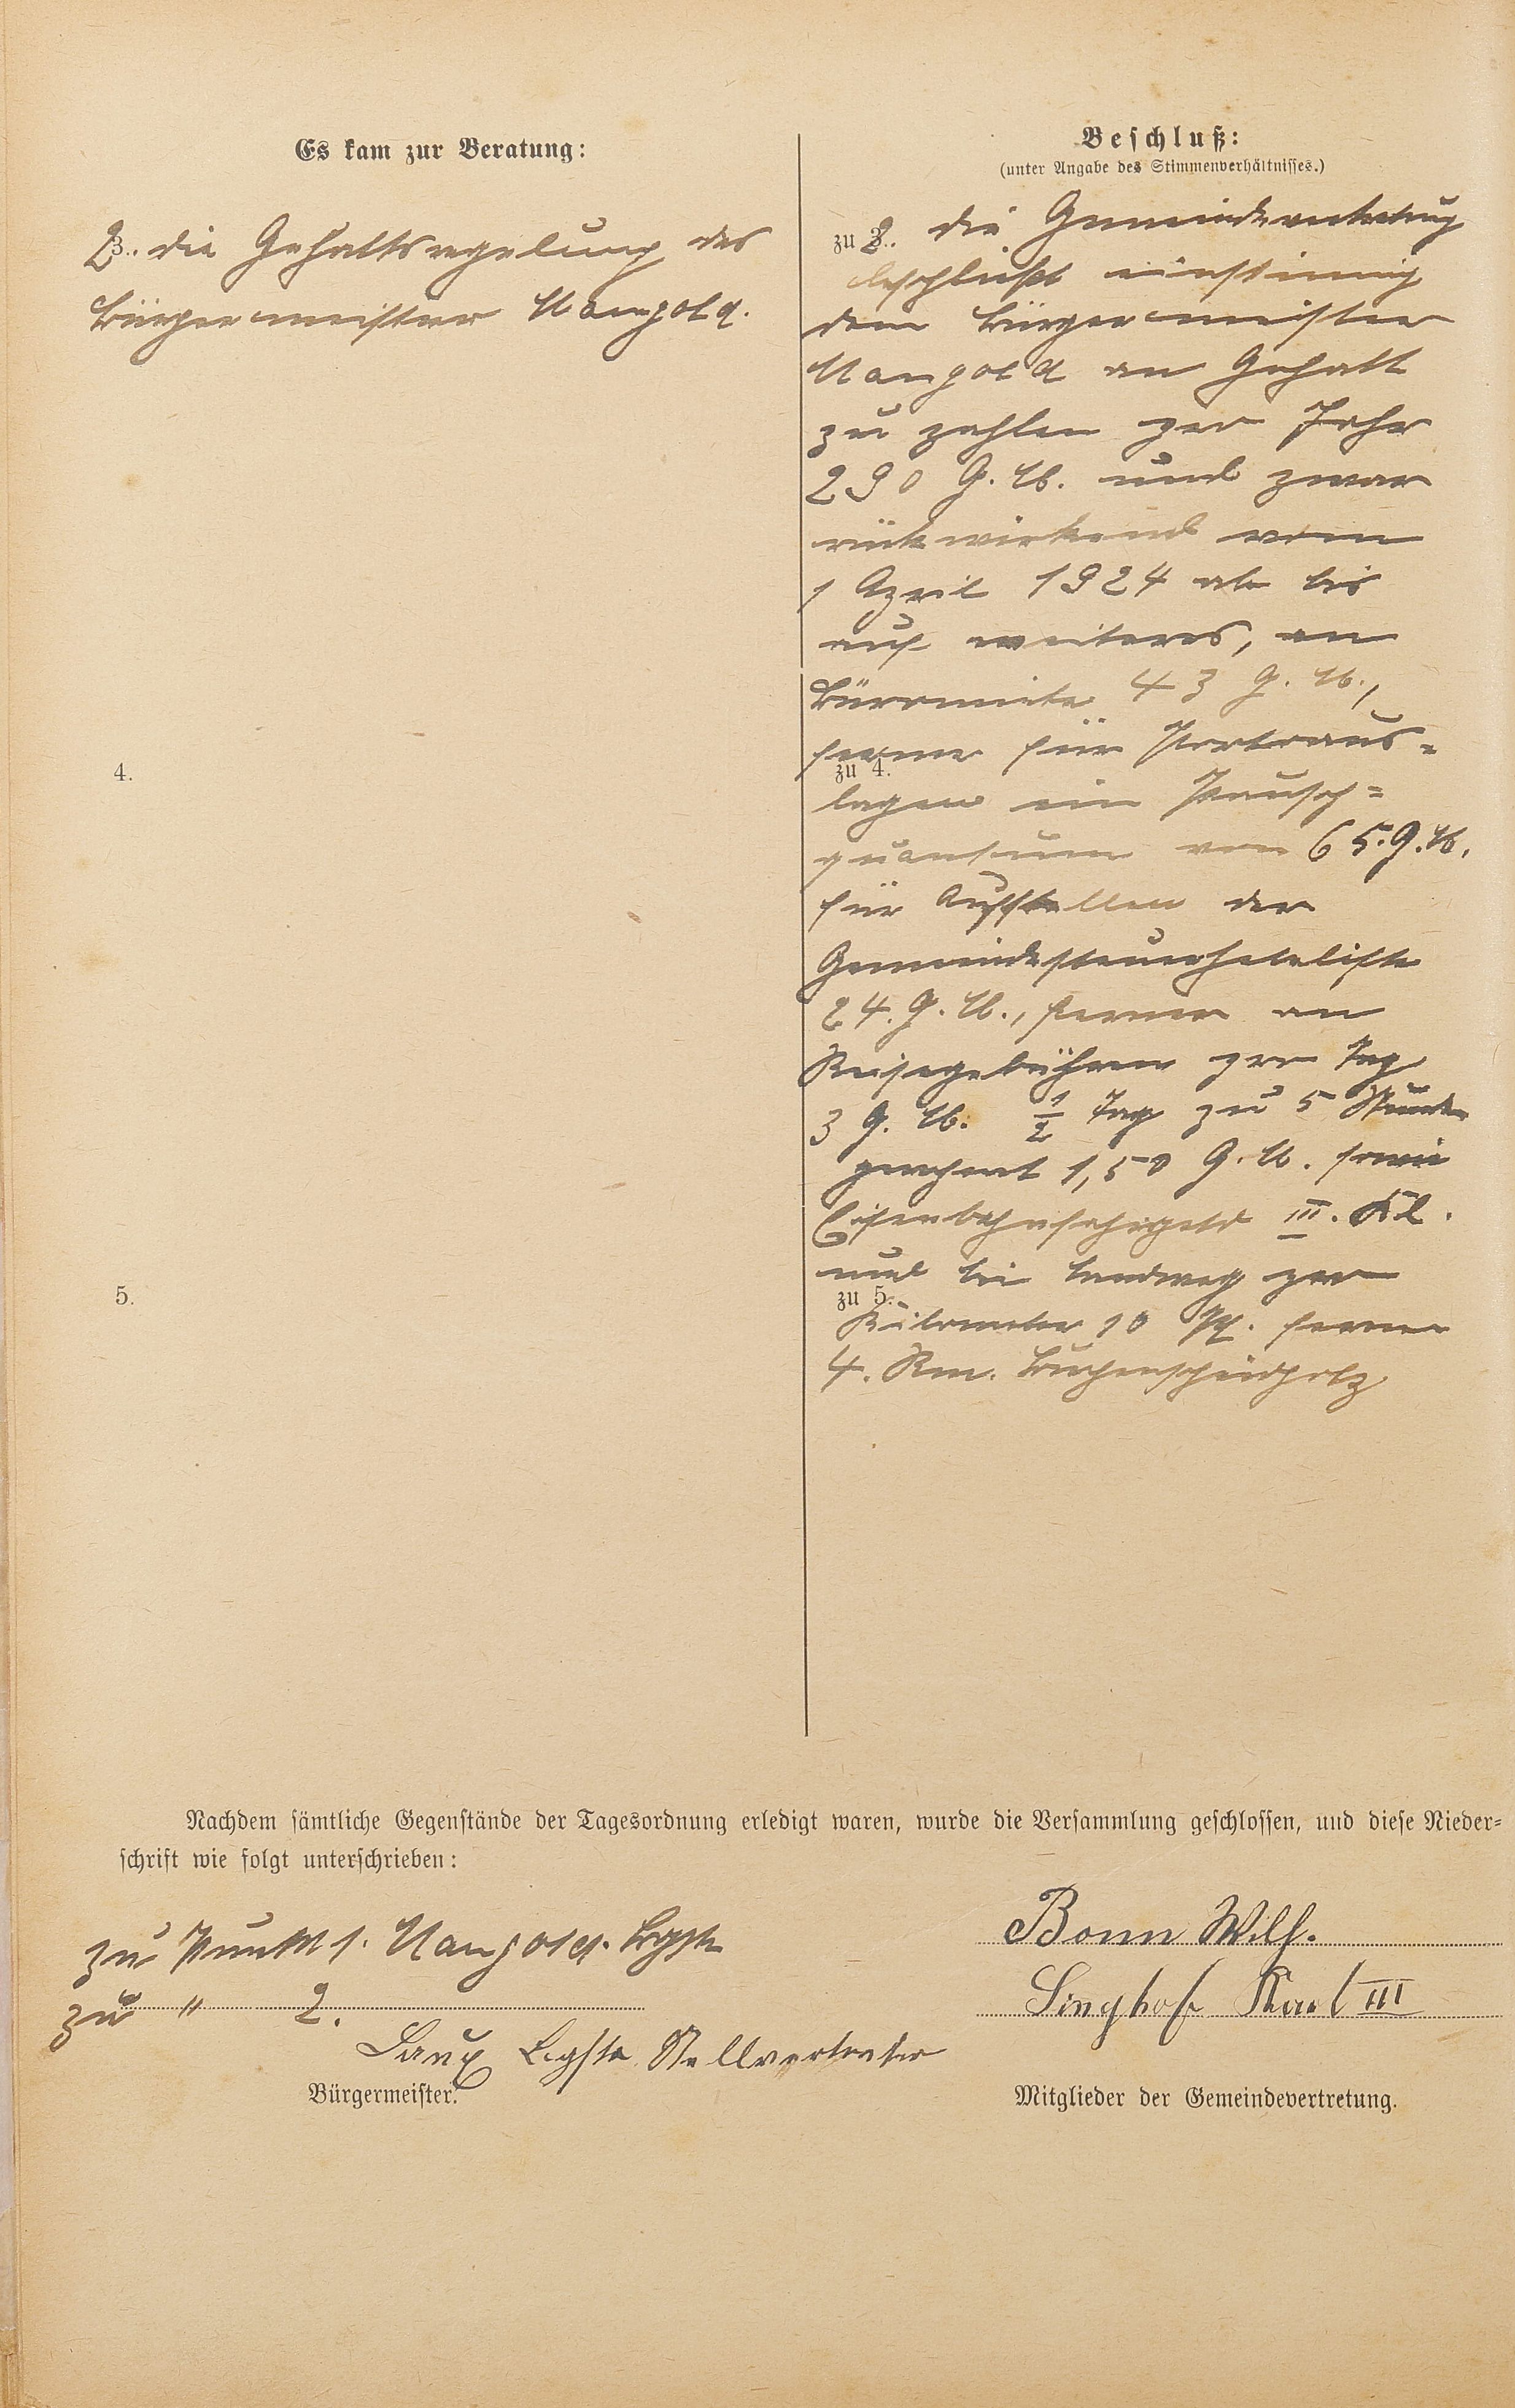 Es kam zur Beratung:
2. die Gehaltsregelung des
Bürgermeister Mangold.
4.
5.
Beschluß:
(unter Angabe des Stimmenverhältnisses.)
zu 2. die Gemeindevertretung
beschließt einstimmig
dem Bürgermeister
Mangold an Gehalt
zu zahlen per Jahr
290 G.M. und zwar
rückwirkend vom
1 April 1924 ab bis
auf weiteres, an
Büromiete 43 G.M.,
ferner für Portoaus=
zu 4.
lagen ein Pausch=
quantum von 65.G.M.
für Aufstellen der
Gemeindesteuerhebeliste
24.G.M., ferner an
Reisegebühren pro Tag
3 G.M. 1/2 Tag zu 5 Stunden
gerechnet 1,50 G.M. sowie
Eisenbahnfahrgeld III. Kl.
und bei Landweg per
zu 5.
Kilometer 10 Pf. ferner
4. Rm. Buchenscheidholz
Nachdem sämtliche Gegenstände der Tagesordnung erledigt waren, wurde die Versammlung geschlossen, und diese Nieder=
schrift wie folgt unterschrieben:
zu Punkt 1. Mangold. Bgst.
zu " 2.
Laux Bgstr. Stellvertreter
Bürgermeister.
Bonn Wilh.
Singhof Karl III
Mitglieder der Gemeindevertretung.